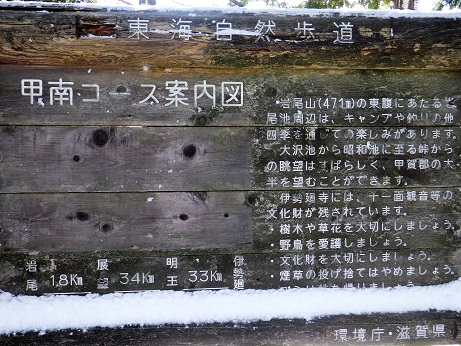 東海自然歩道
甲南コース案内図
・岩尾山(471m)の東腹にあたる
尾池周辺は、キャンプや釣りの他
四季を通しての楽しみがあります。
大沢池から昭和池に至る峠から
の眺望はすばらしく、甲賀郡の大
半を望むことができます。
伊勢廻寺には、十一面観音等の
文化財が残されています。
・樹木や草花を大切にしましょう。
・野鳥を愛護しましょう。
・文化財を大切にしましょう。
・煙草の投げ捨てはやめましょう。
岩尾 1.8Km 展望 3.4Km 明王 3.3Km 伊勢廻
環境庁・滋賀県